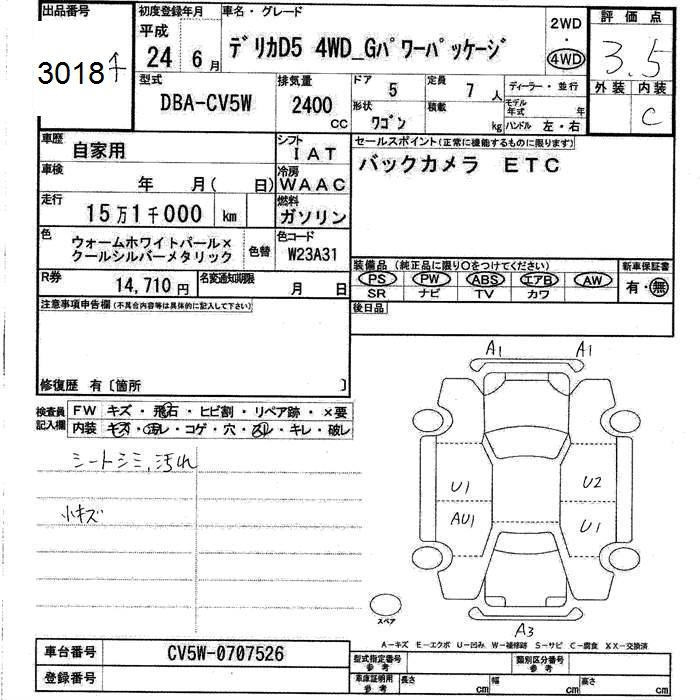 出品番号 初度登録年月 車名・グレード 2WD 評価点
平成
24 6月 ﾃﾞﾘｶD5 4WD_Gﾊﾟﾜｰﾊﾟｯｹｰｼﾞ ・ 3.5
30184 4WD
型式 排気量 ドア 5 定員 7人 ディーラー・並行 外装 内装
DBA-CV5W 2400 CC 形状 ﾜｺﾞﾝ 積載 kg モデル年式 年 C
ハンドル 左・右
車歴 自家用 シフト IAT セールスポイント(正常に機能するものに限ります)
車検 年 月( 日) 冷房 WAAC バックカメラ ETC
走行 15万1千000 km 燃料 ガソリン
色 ウォームホワイトパール×クールシルバーメタリック 色替 色コード W23A31
装備品 (純正品に限り○をつけてください) 新車保証書
R券 14,710円 名変通知期限 月 日 PS PW ABS エアB AW 有・無
SR ナビ TV カワ
注意事項申告欄(不具合内容等は具体的に記入して下さい) 後日品
修復歴 有〔箇所 〕
A1 A1
検査員記入欄 FW キズ・飛石・ヒビ割・リペア跡・×要
内装 キズ・汚レ・コゲ・穴・スレ・キレ・破レ
シートシミ,汚れ
U1 U2
小キズ AU1 U1
スペア
A3
A-キズ E-エクボ U-凹み W-補修跡 S-サビ C-腐食 XX-交換済
車台番号 CV5W-0707526 型式指定番号 参考 類別区分番号 参考
登録番号 車庫証明用 参考 長さ cm 幅 cm 高さ cm